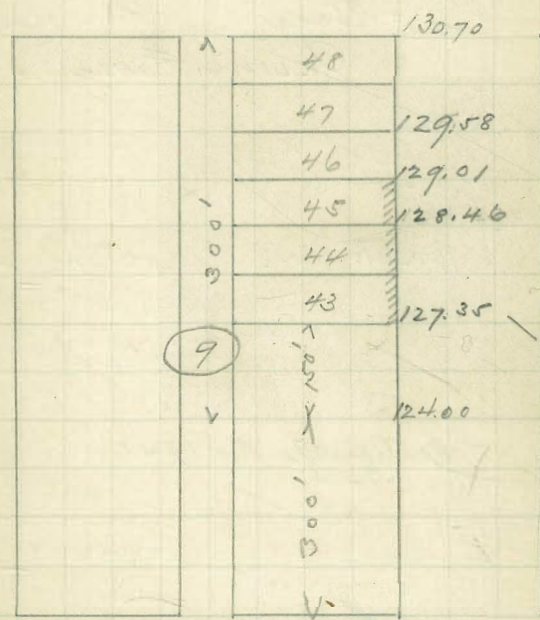 130.70
48
47
129.58
46
129.01
45
128.46
300'
44
43
127.35
9
150'
124.00
300'